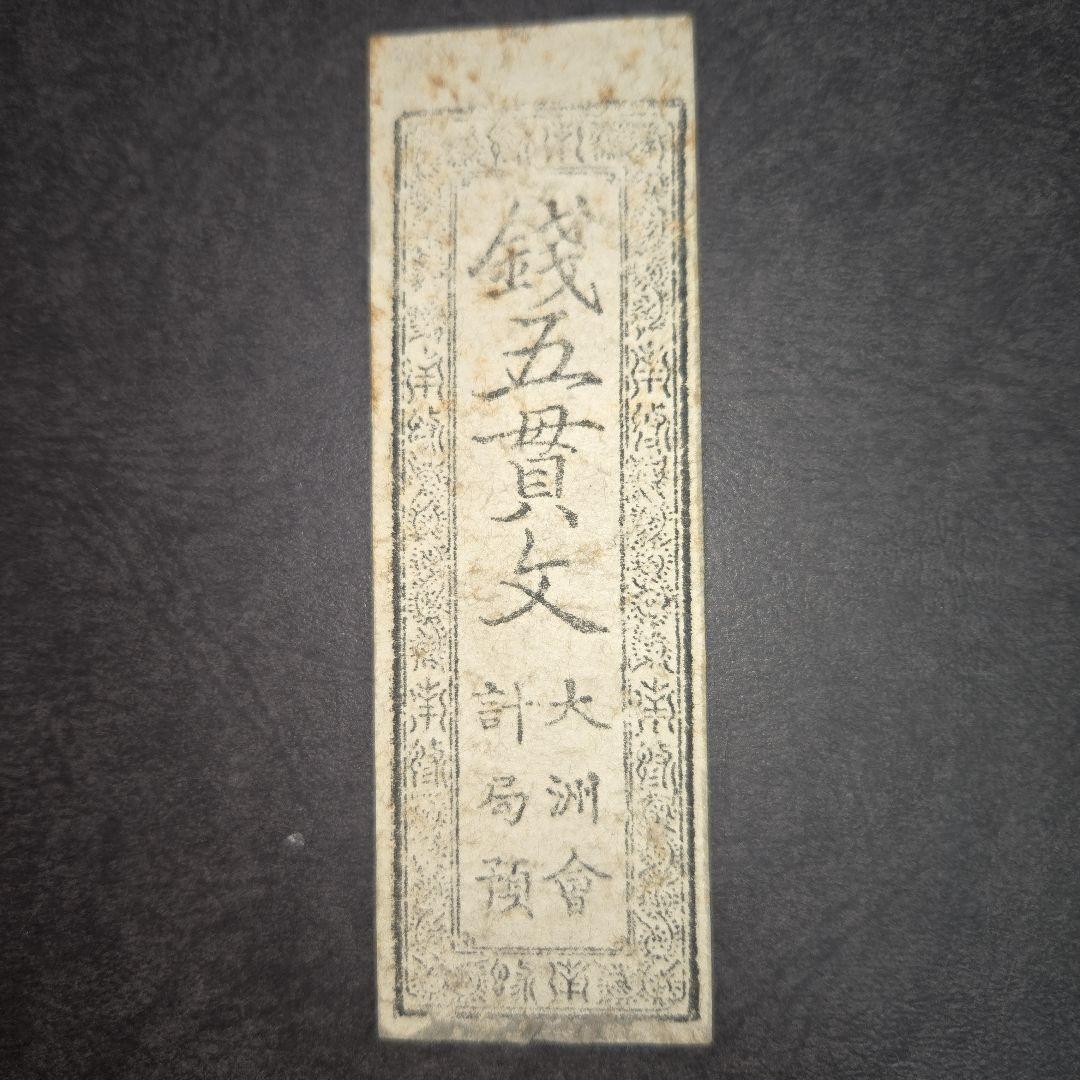 錢五貫文
大洲會
計局預